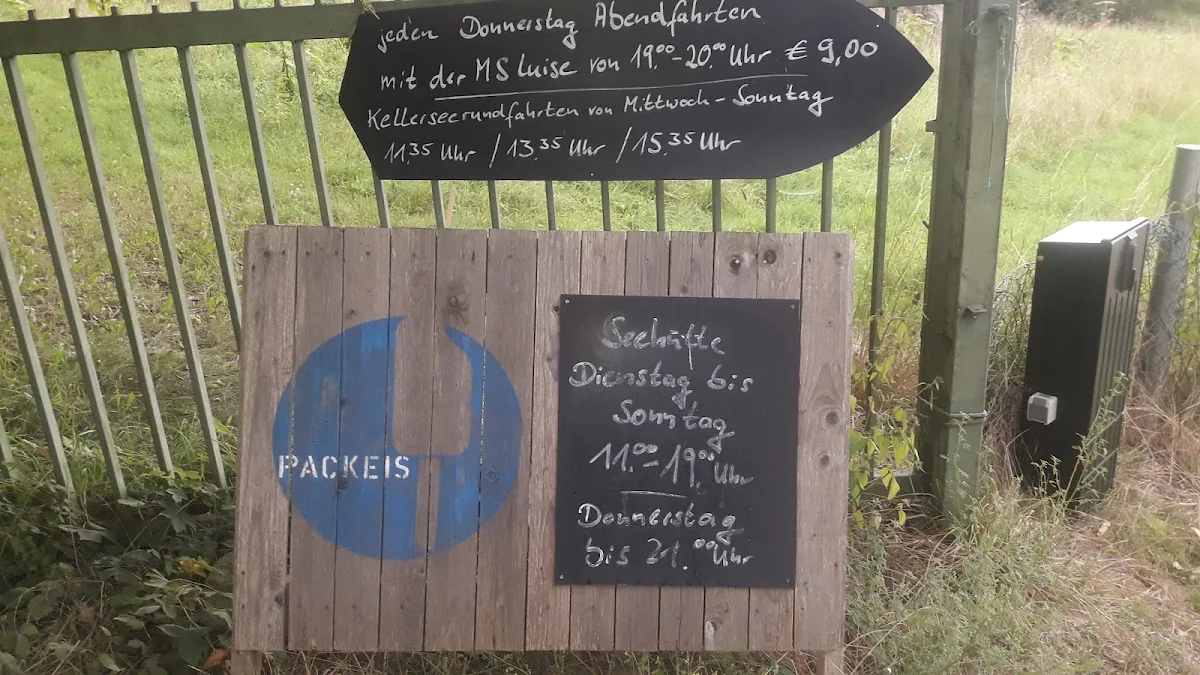 jeden Donnerstag Abendfahrten
mit der MS Luise von 19.⁰⁰-20.⁰⁰ Uhr € 9,00
Kellerseerundfahrten von Mittwoch - Sonntag
11.³⁵ Uhr / 13.³⁵ Uhr / 15.³⁵ Uhr
PACKEIS
Seehüfte
Dienstag bis
Sonntag
11.⁰⁰-19.⁰⁰ Uhr
Donnerstag
bis 21.⁰⁰ Uhr